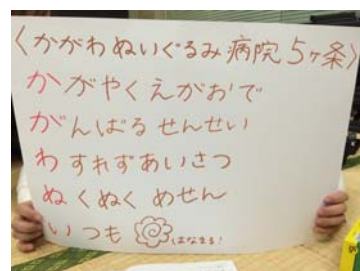 〈かがわぬいぐるみ病院5ヶ条〉
かがやくえがおで
がんばるせんせい
わすれずあいさつ
ぬくぬくめせん
いつも はなまる!